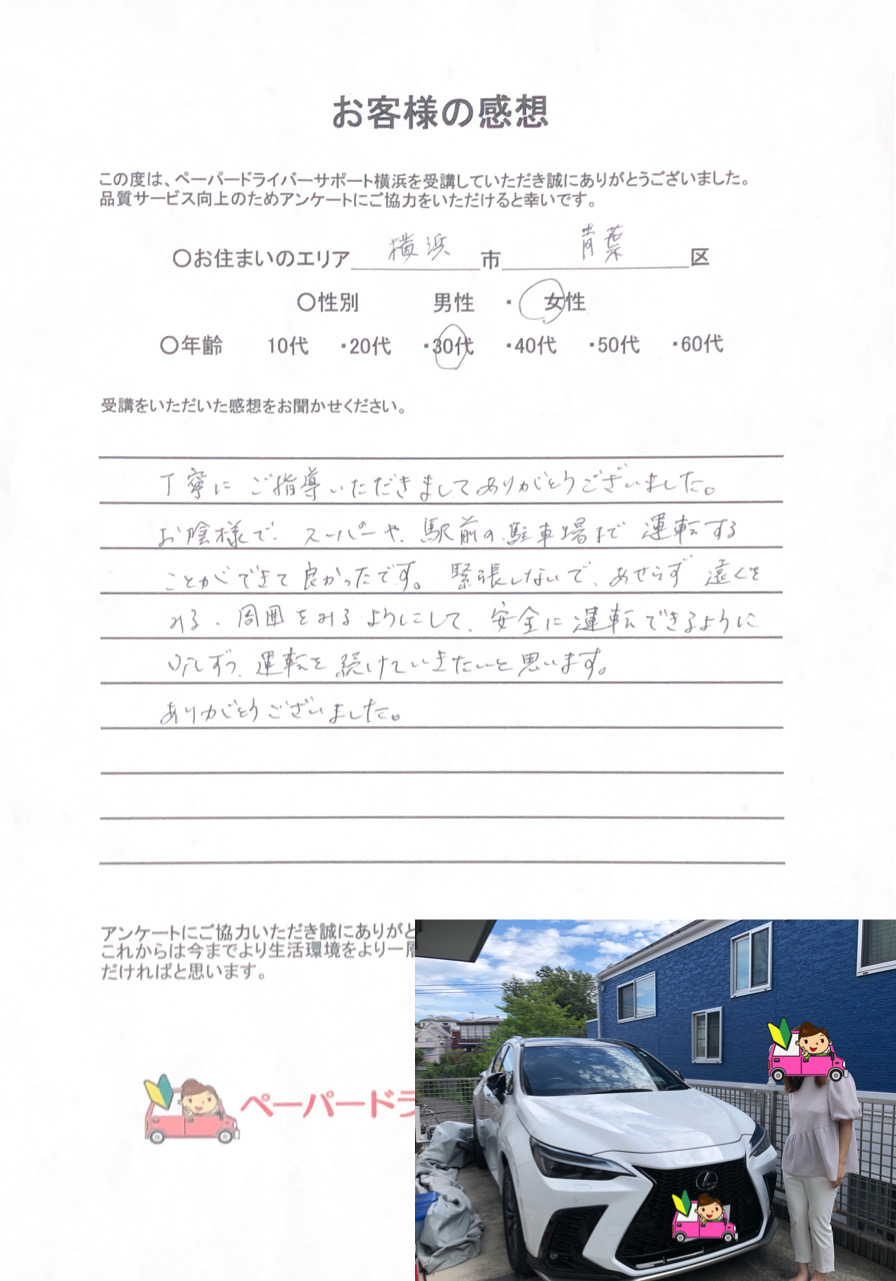 お客様の感想
この度は、ペーパードライバーサポート横浜を受講していただき誠にありがとうございました。
品質サービス向上のためアンケートにご協力をいただけると幸いです。
〇お住まいのエリア 横浜 市 青葉 区
〇性別 男性 ・ 女性
〇年齢 10代 ・20代 ・30代 ・40代 ・50代 ・60代
受講をいただいた感想をお聞かせください。
丁寧にご指導いただきましてありがとうございました。
お陰様で、スーパーや、駅前の駐車場まで運転する
ことができて良かったです。緊張しないで、あせらず遠くを
みる、周囲をみるようにして、安全に運転できるように
少しずつ、運転を続けていきたいと思います。
ありがとうございました。
アンケートにご協力いただき誠にありがと
これからは今までより生活環境をより一層
だければと思います。
ペーパードラ